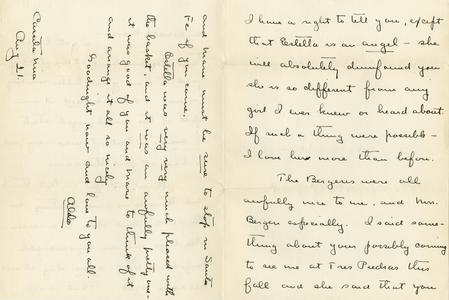 I have a right to tell you, except
that Estella is an angel - she
will absolutely dumfound you
she is so different from any
girl I ever knew or heard about.
If such a thing were possible -
I love her more than before.
The Bergens were all
awfully nice to me, and Mrs.
Bergen especially. I said some-
thing about your possibly coming
to see me at Tres Piedras this
fall and she said that you
and Marie must be sure to stop in Santa
Fe if you came.
Estella was very very much pleased with
the basket, and it was an awfully pretty one -
it was good of you and Marie to think of it
and arrange it all so nicely.
Goodnight now and love to you all
Aldo
Aug 21.